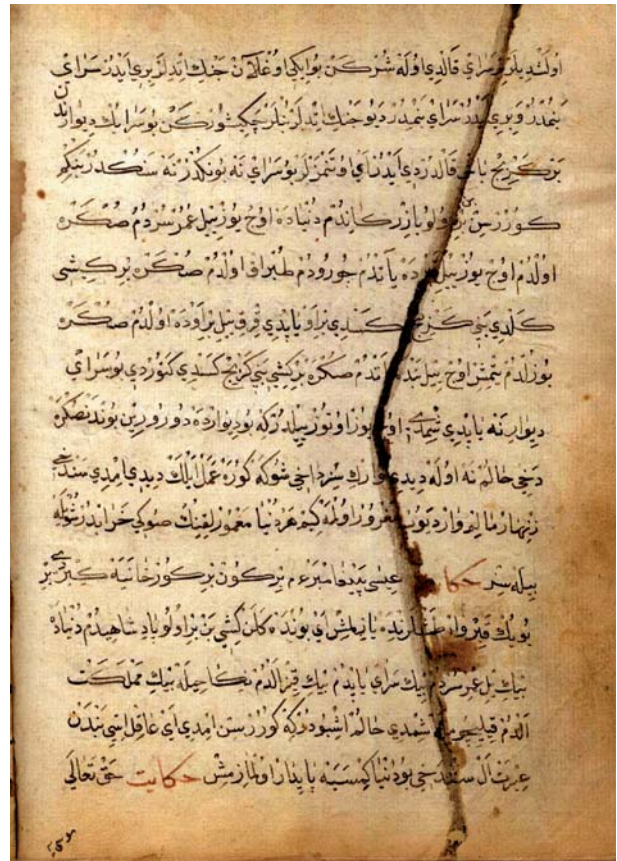 اولندیلر بر سرای قالدی اوله شرکن بو ایکی اوغلان جنك اتدلر بری ایدر سرای
بنمدر و بری ایدر سرای بنمدر دیو جنك اتدلر بنلر چکیشورکن بو سرایك دیوارندن
بر کربج قالدردی ایدر ای اوتنمزلر بو سرای نه بونکدر نه سنکدر بنکم
کوررسن بن بر اولو بازرکاندم دنیاده اوج یوز ییل عمر سردم صکره
اولدم اوج یوز ییل یرده یاتدم جورودم طبراق اولدم صکره بر کشی
کلدی بنی کربج کسدی بر او یاپدی قرق ییل بر اوده اولدم صکره
بوزلدم یتمش اوج ییل یاتدم صکره بر کشی بنی کربج کسدی کتوردی بو سرای
دیوارنه یاپدی شمدی اوج یوز اوتوز ییلدرکه بو دیوارده دورورین بوندنصکره
دخی حالم نه اوله دیدی وارك سز داخی شوکه کوره عمل ایلك دیدی امدی سنده
زنهار مالم واردیوب مغرور اولمه کیم هر دنیا معمورلقنك صوکی خرابدر شویله
بیله سز حکایت عیسی پیغامبر ع م بر کون بر کورخانیه کیردی بر
بویك قبر وار طشارنده یازلمش ای بونده کلن کشی بن بر اولو پادشاهیدم دنیاده
بیك ییل عمر سردم بیك سرای یاپدم بیك قیز الدم نکاحیله بیك مملکت
الدم قیلیجومله شمدی حالم اشبودرکه کوررسن امدی ای عاقل اسی بندن
عبرت ال سنده دخی بو دنیا کمسیه پایدار اولمازمش حکایت حق تعالی